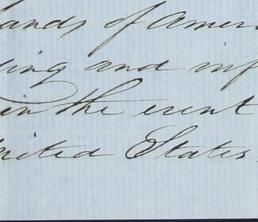 ands of Amer
ing and inf
in the event
nited States